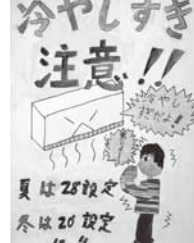 冷やしすぎ
注意!!
冷やし
すぎだよ!
夏は28設定
冬は20設定